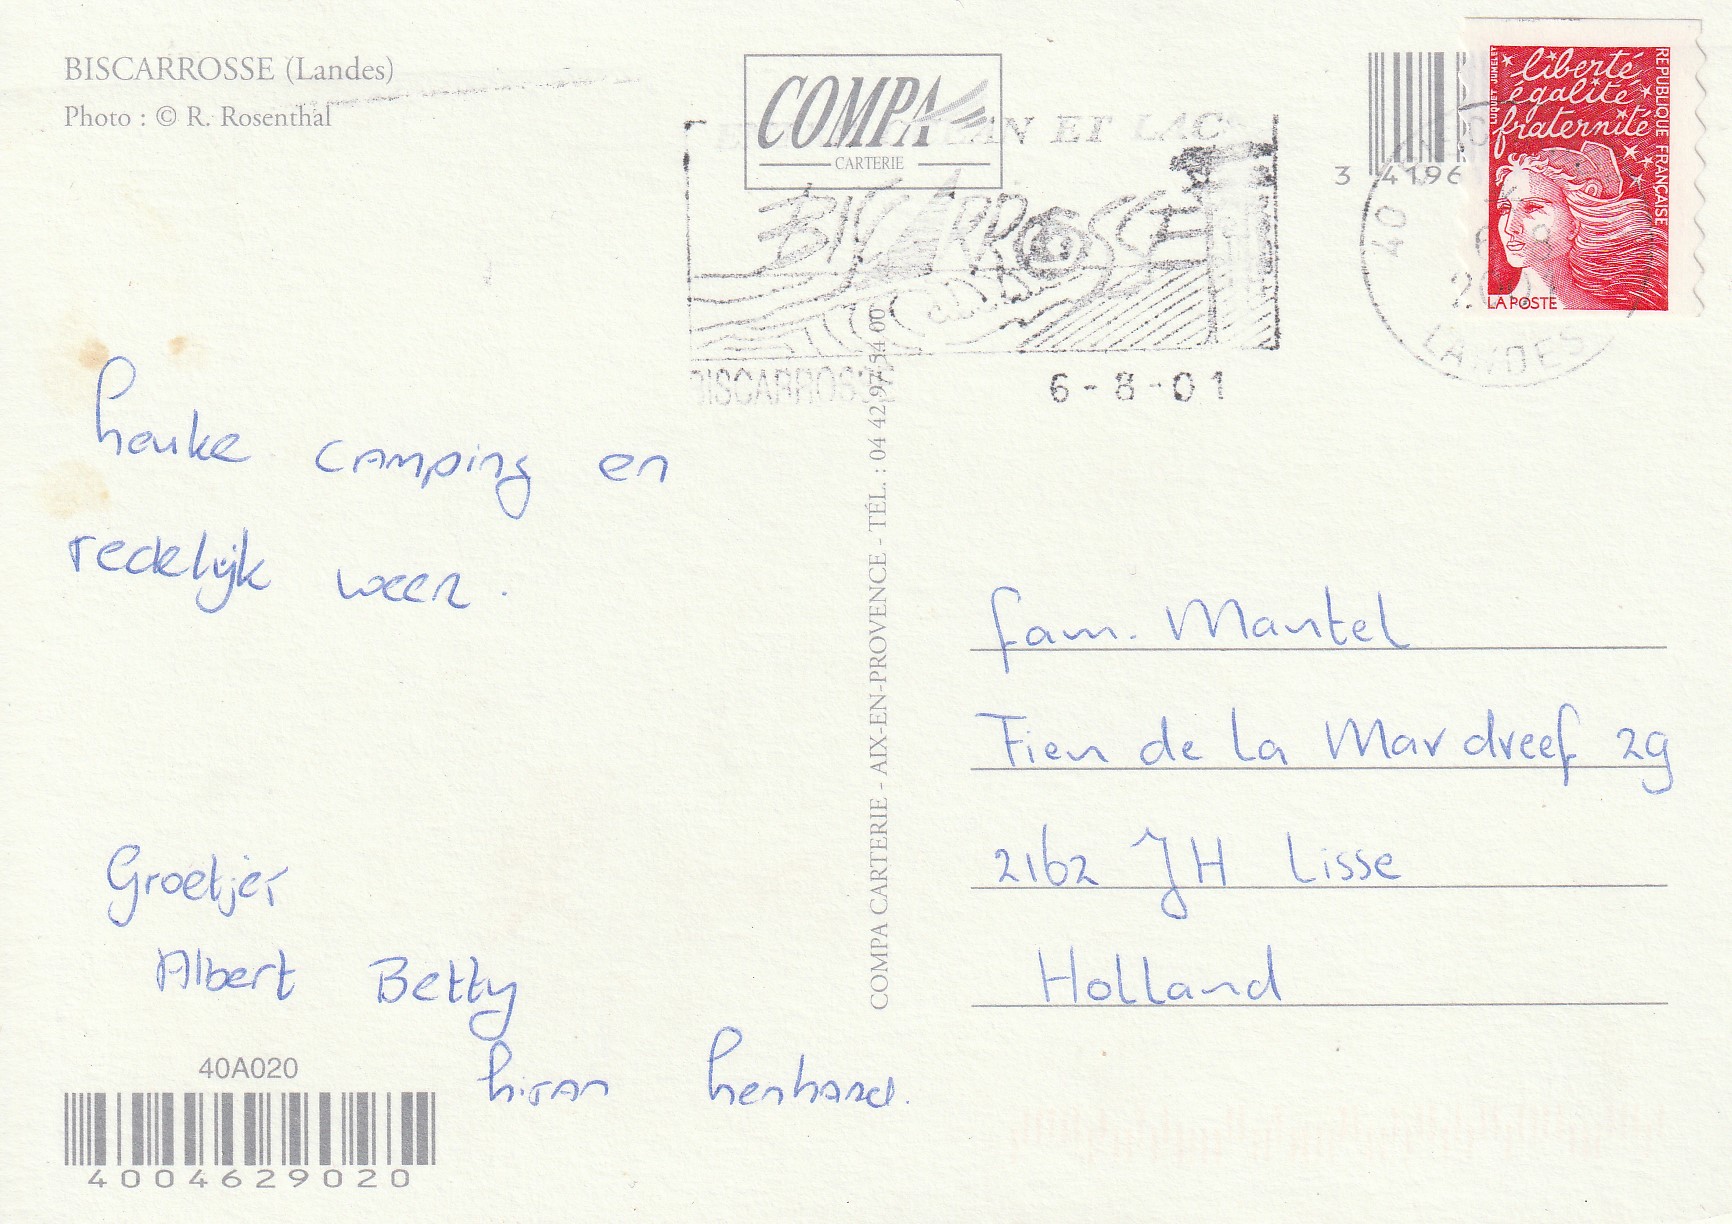 BISCARROSSE (Landes)
Photo : © R. Rosenthal
COMPA
CARTERIE
ET LACS
BISCARROSSE
BISCARROSSE
6-8-01
3 4196
40
2001
LANDES
liberté
égalité
fraternité
RÉPUBLIQUE FRANÇAISE
LA POSTE
leuke camping en
redelijk weer.
Groetjes
Albert Betty
hiran
40A020
4004629020
COMPA CARTERIE - AIX-EN-PROVENCE - TÉL. : 04 42 97 54 00
fam. Mantel
Fien de la Mar dreef 29
2162 JH Lisse
Holland